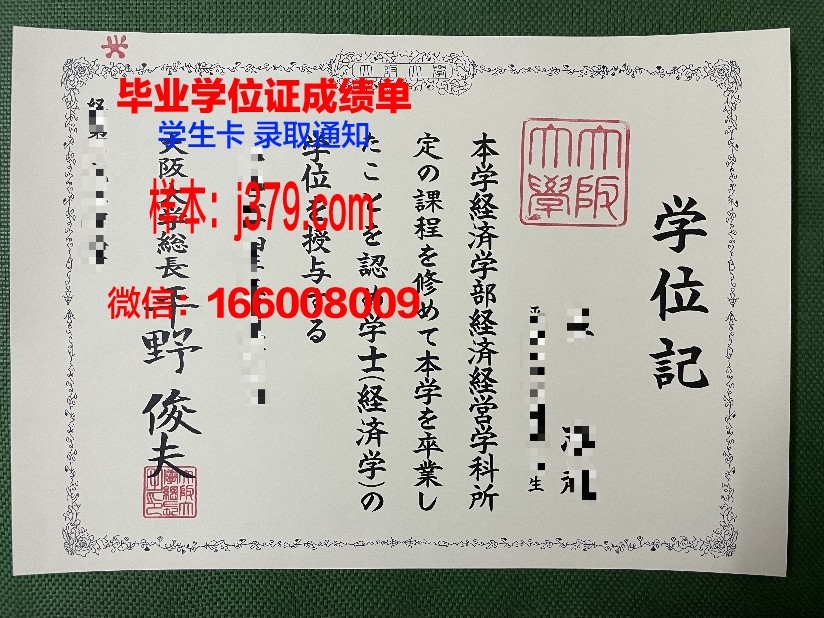 毕业学位证成绩单
学生卡 录取通知
样本: j379.com
微信: 166008009
学位記
大阪
大學
生
本学経済学部経済経営学科所
定の課程を修めて本学を卒業し
たことを認め学士(経済学)の
学位を授与する
大阪大学総長 平野俊夫